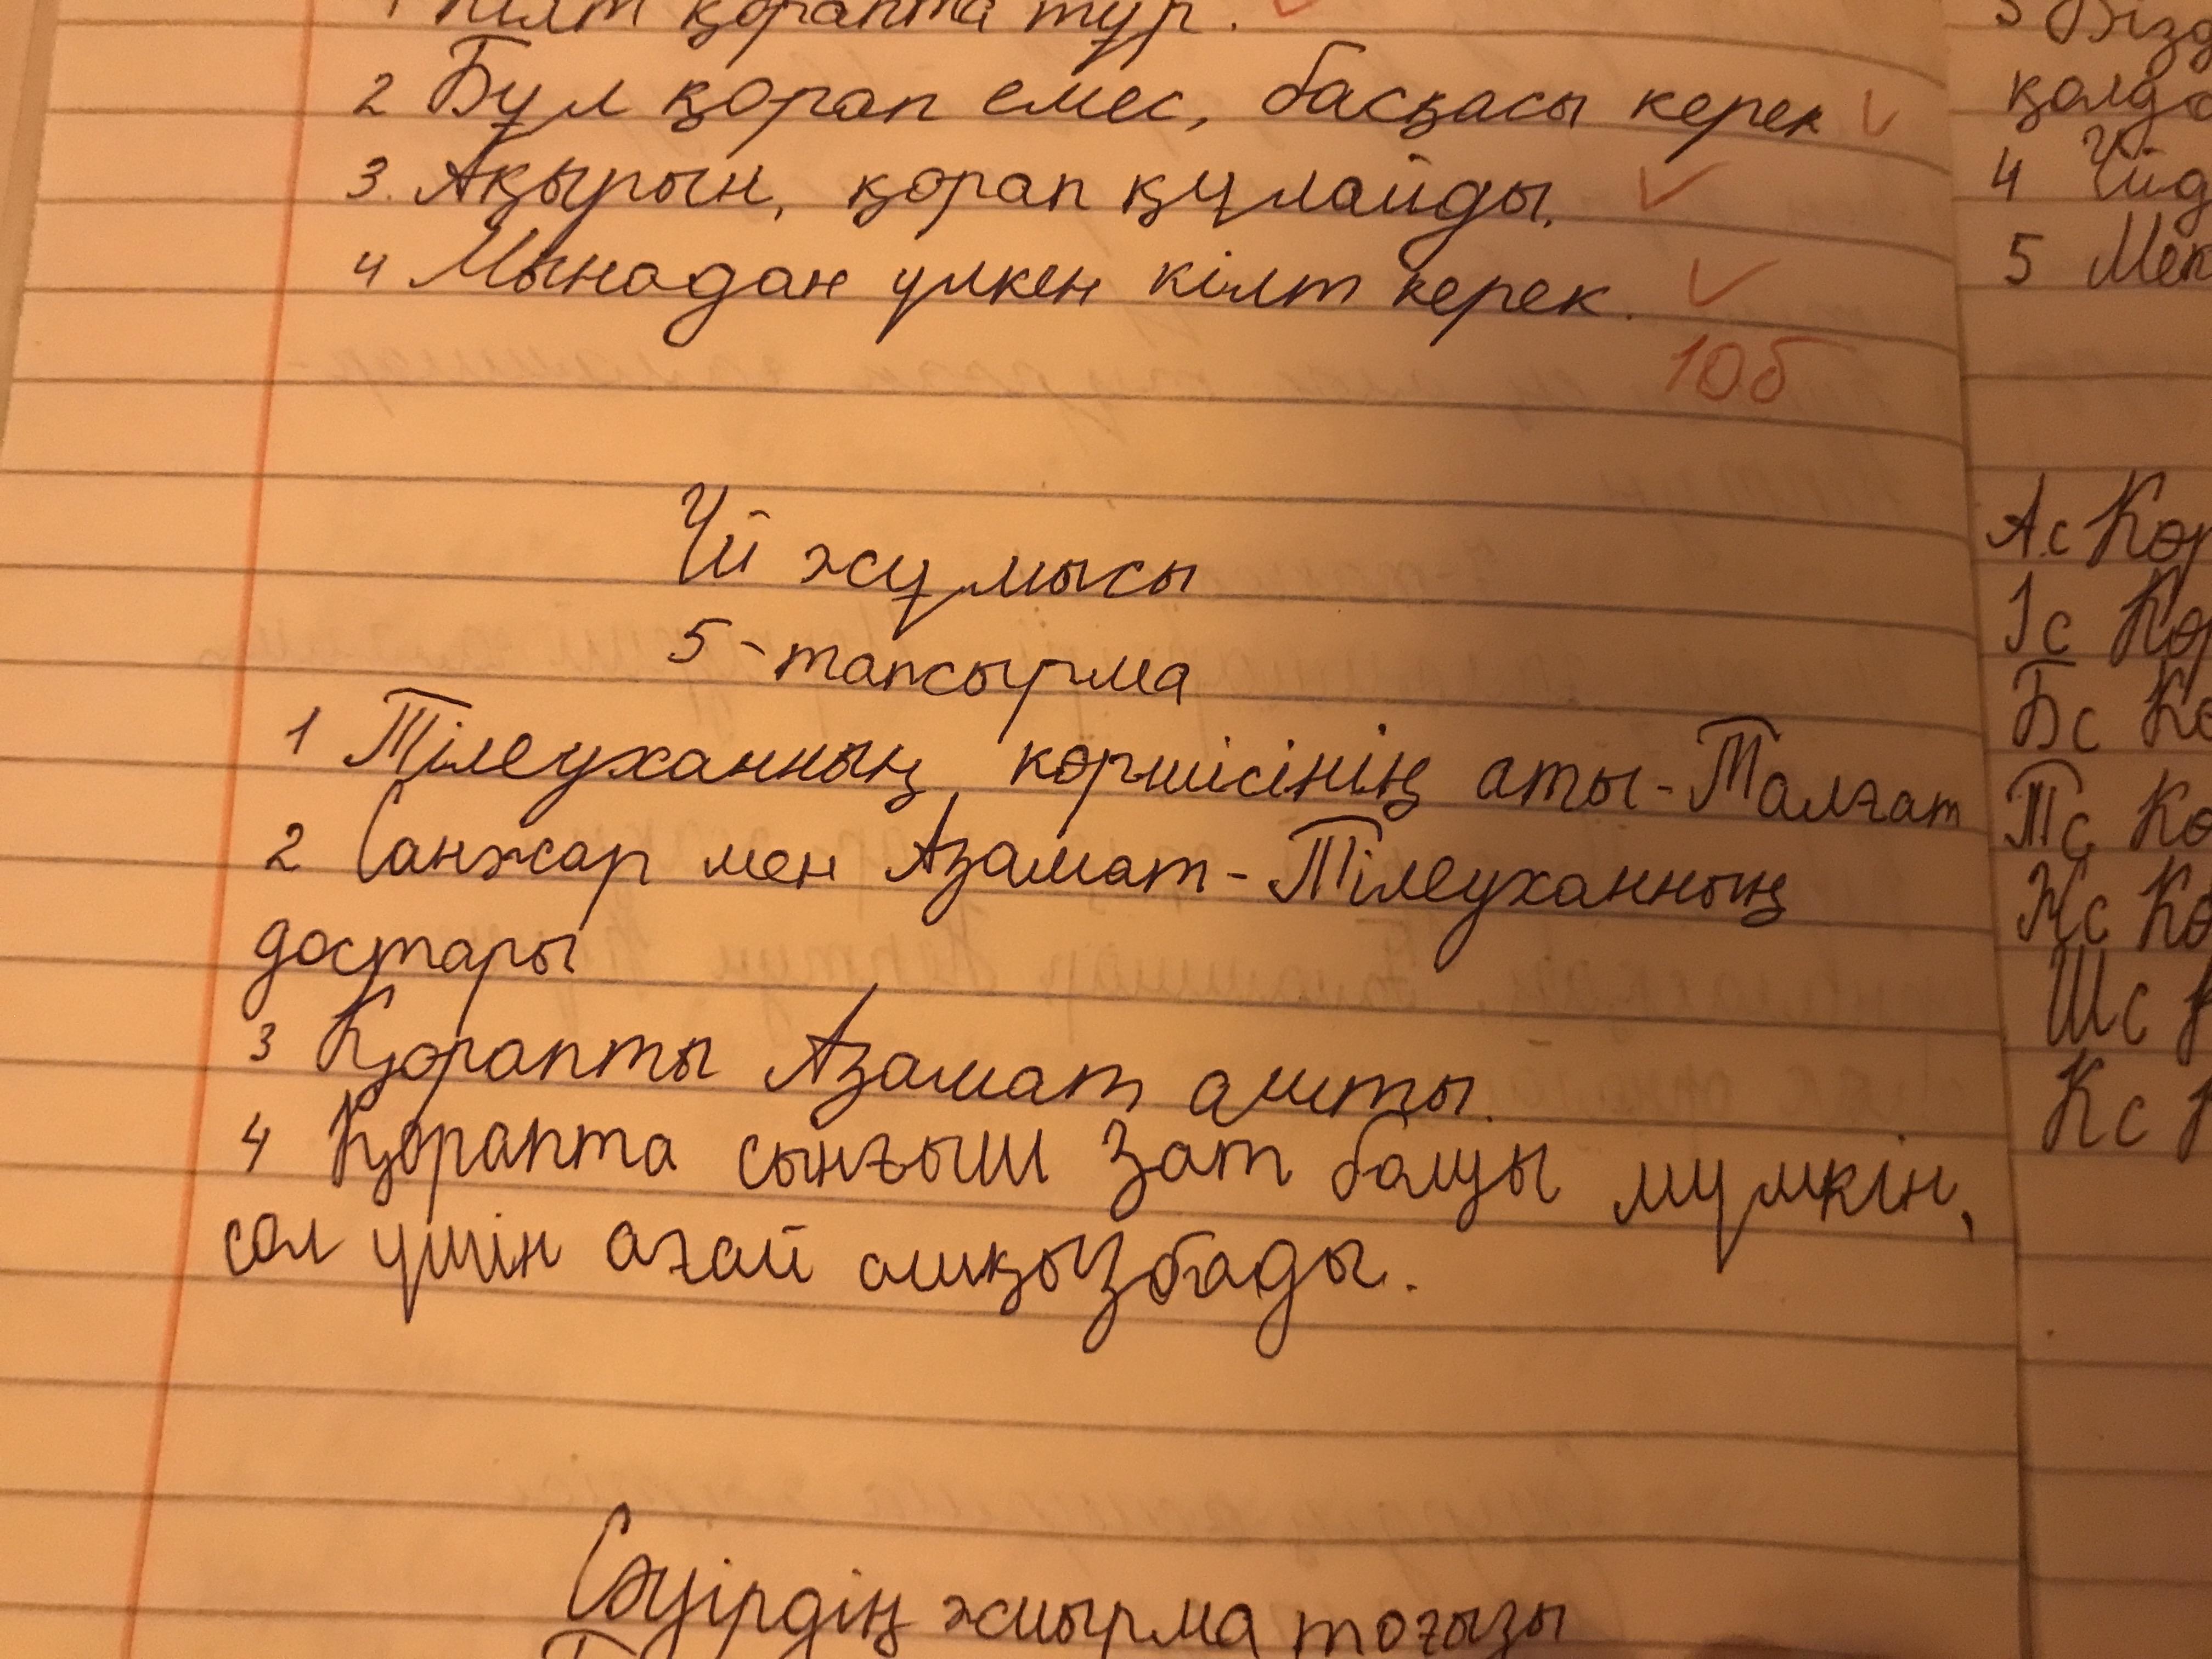 Кілт қорапта тұр.
2 Бұл қорап емес, басқасы керек
3. Ақырын, қорап құлайды.
4 Мынадан үлкен кілт керек.
10б
Үй жұмысы
5-тапсырма
1 Тілеуханның көршісінің аты-Талғат
2 Санжар мен Азамат-Тілеуханның
достары
3 Қорапты Азамат ашты.
4 Қорапта сынғыш зат болуы мүмкін,
сол үшін ағай ашқызбады.
Сәуірдің жиырма тоғызы
4
5
Ас
Іс
Бс
Тс
Жс
Шс
Кс